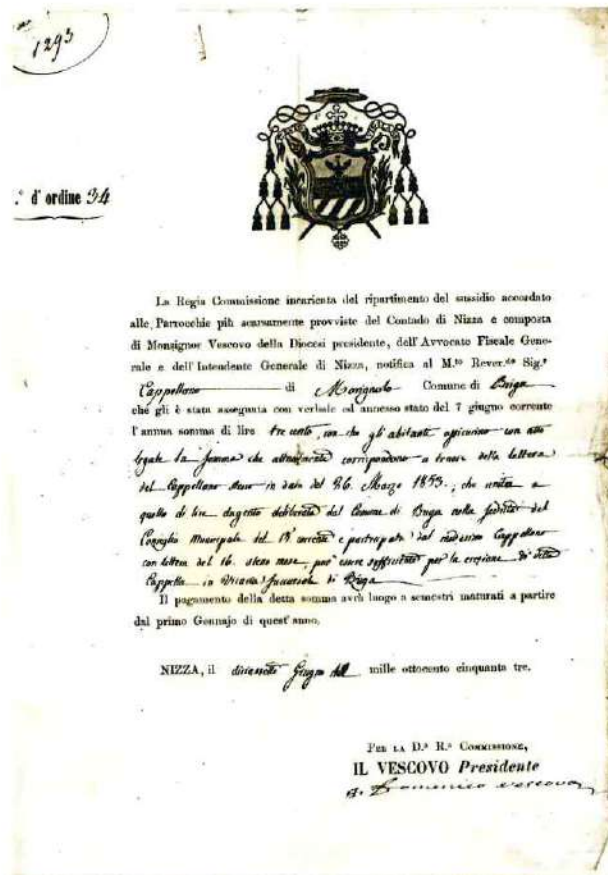 1293
° d' ordine 34
La Regia Commissione incaricata del ripartimento del sussidio accordato
alle Parrocchie più scarsamente provviste del Contado di Nizza e composta
di Monsignor Vescovo della Diocesi presidente, dell'Avvocato Fiscale Gene-
rale e dell'Intendente Generale di Nizza, notifica al M.to Rever.do Sig.r
Cappellano di Morignolo Comune di Briga
che gli è stata assegnata con verbale ed annesso stato del 7 giugno corrente
l'annua somma di lire trecento, con che gli abitanti assicurino con atto
legale la somma che attualmente corrispondono a tenore della lettera
del Cappellano stesso in data del 26 Marzo 1853; che unita a
quella di lire dugento deliberata dal Comune di Briga nella seduta del
Consiglio Municipale del 13 corrente e partecipata dal medesimo Cappellano
con lettera del 16 stesso mese, può essere sufficiente per la erezione di detta
Cappella in Vicaria Succursale di Briga
Il pagamento della detta somma avrà luogo a semestri maturati a partire
dal primo Gennajo di quest'anno.
NIZZA, il diciassette Giugno del mille ottocento cinquanta tre.
PER LA D.a R.a COMMISSIONE,
IL VESCOVO Presidente
Domenico vescovo